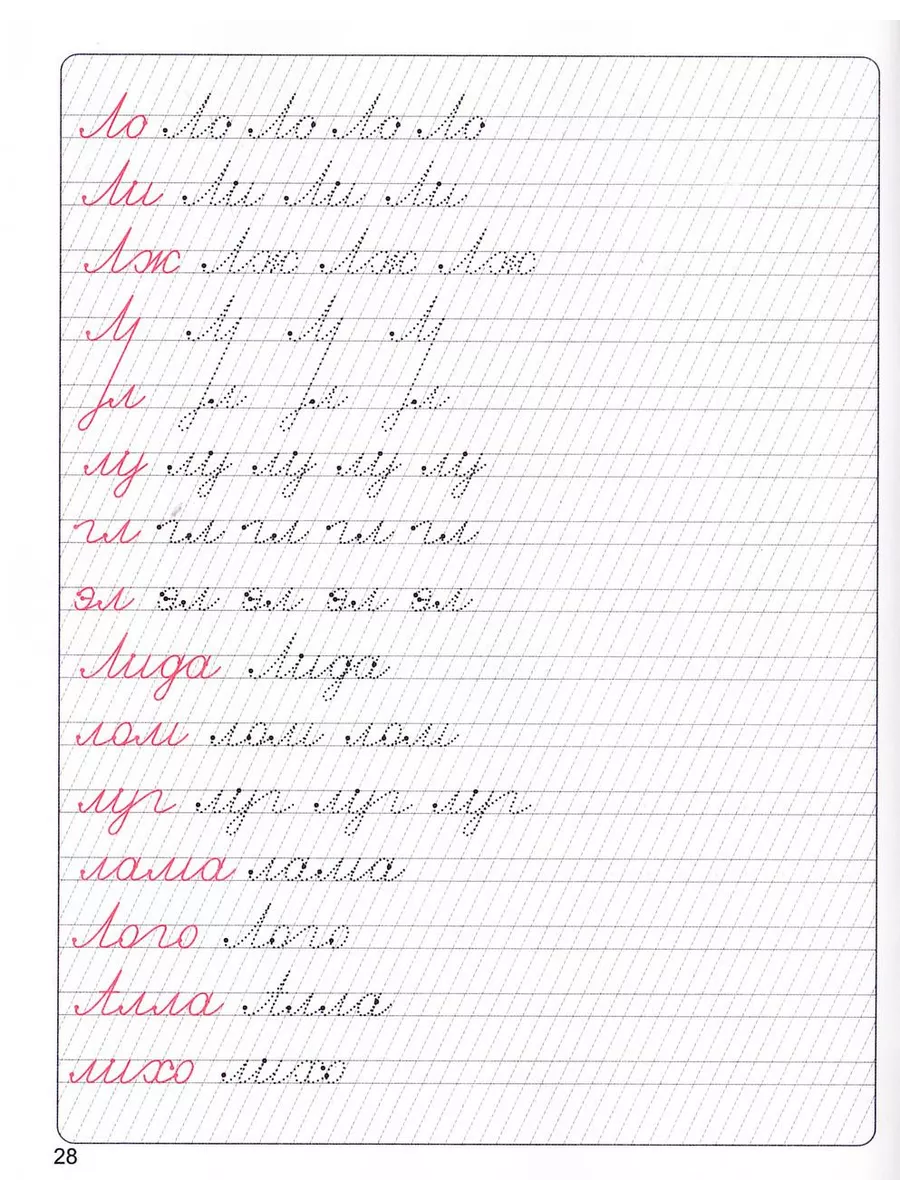 Ло Ло Ло Ло Ло
Ли Ли Ли Ли
Лж Лж Лж Лж
Лу Лу Лу Лу
л л л л
лу лу лу лу лу
гл гл гл гл гл
эл эл эл эл эл
Лида Лида
лом лом лом
луг луг луг луг
лама лама
Лого Лого
Алла Алла
лихо лихо
28